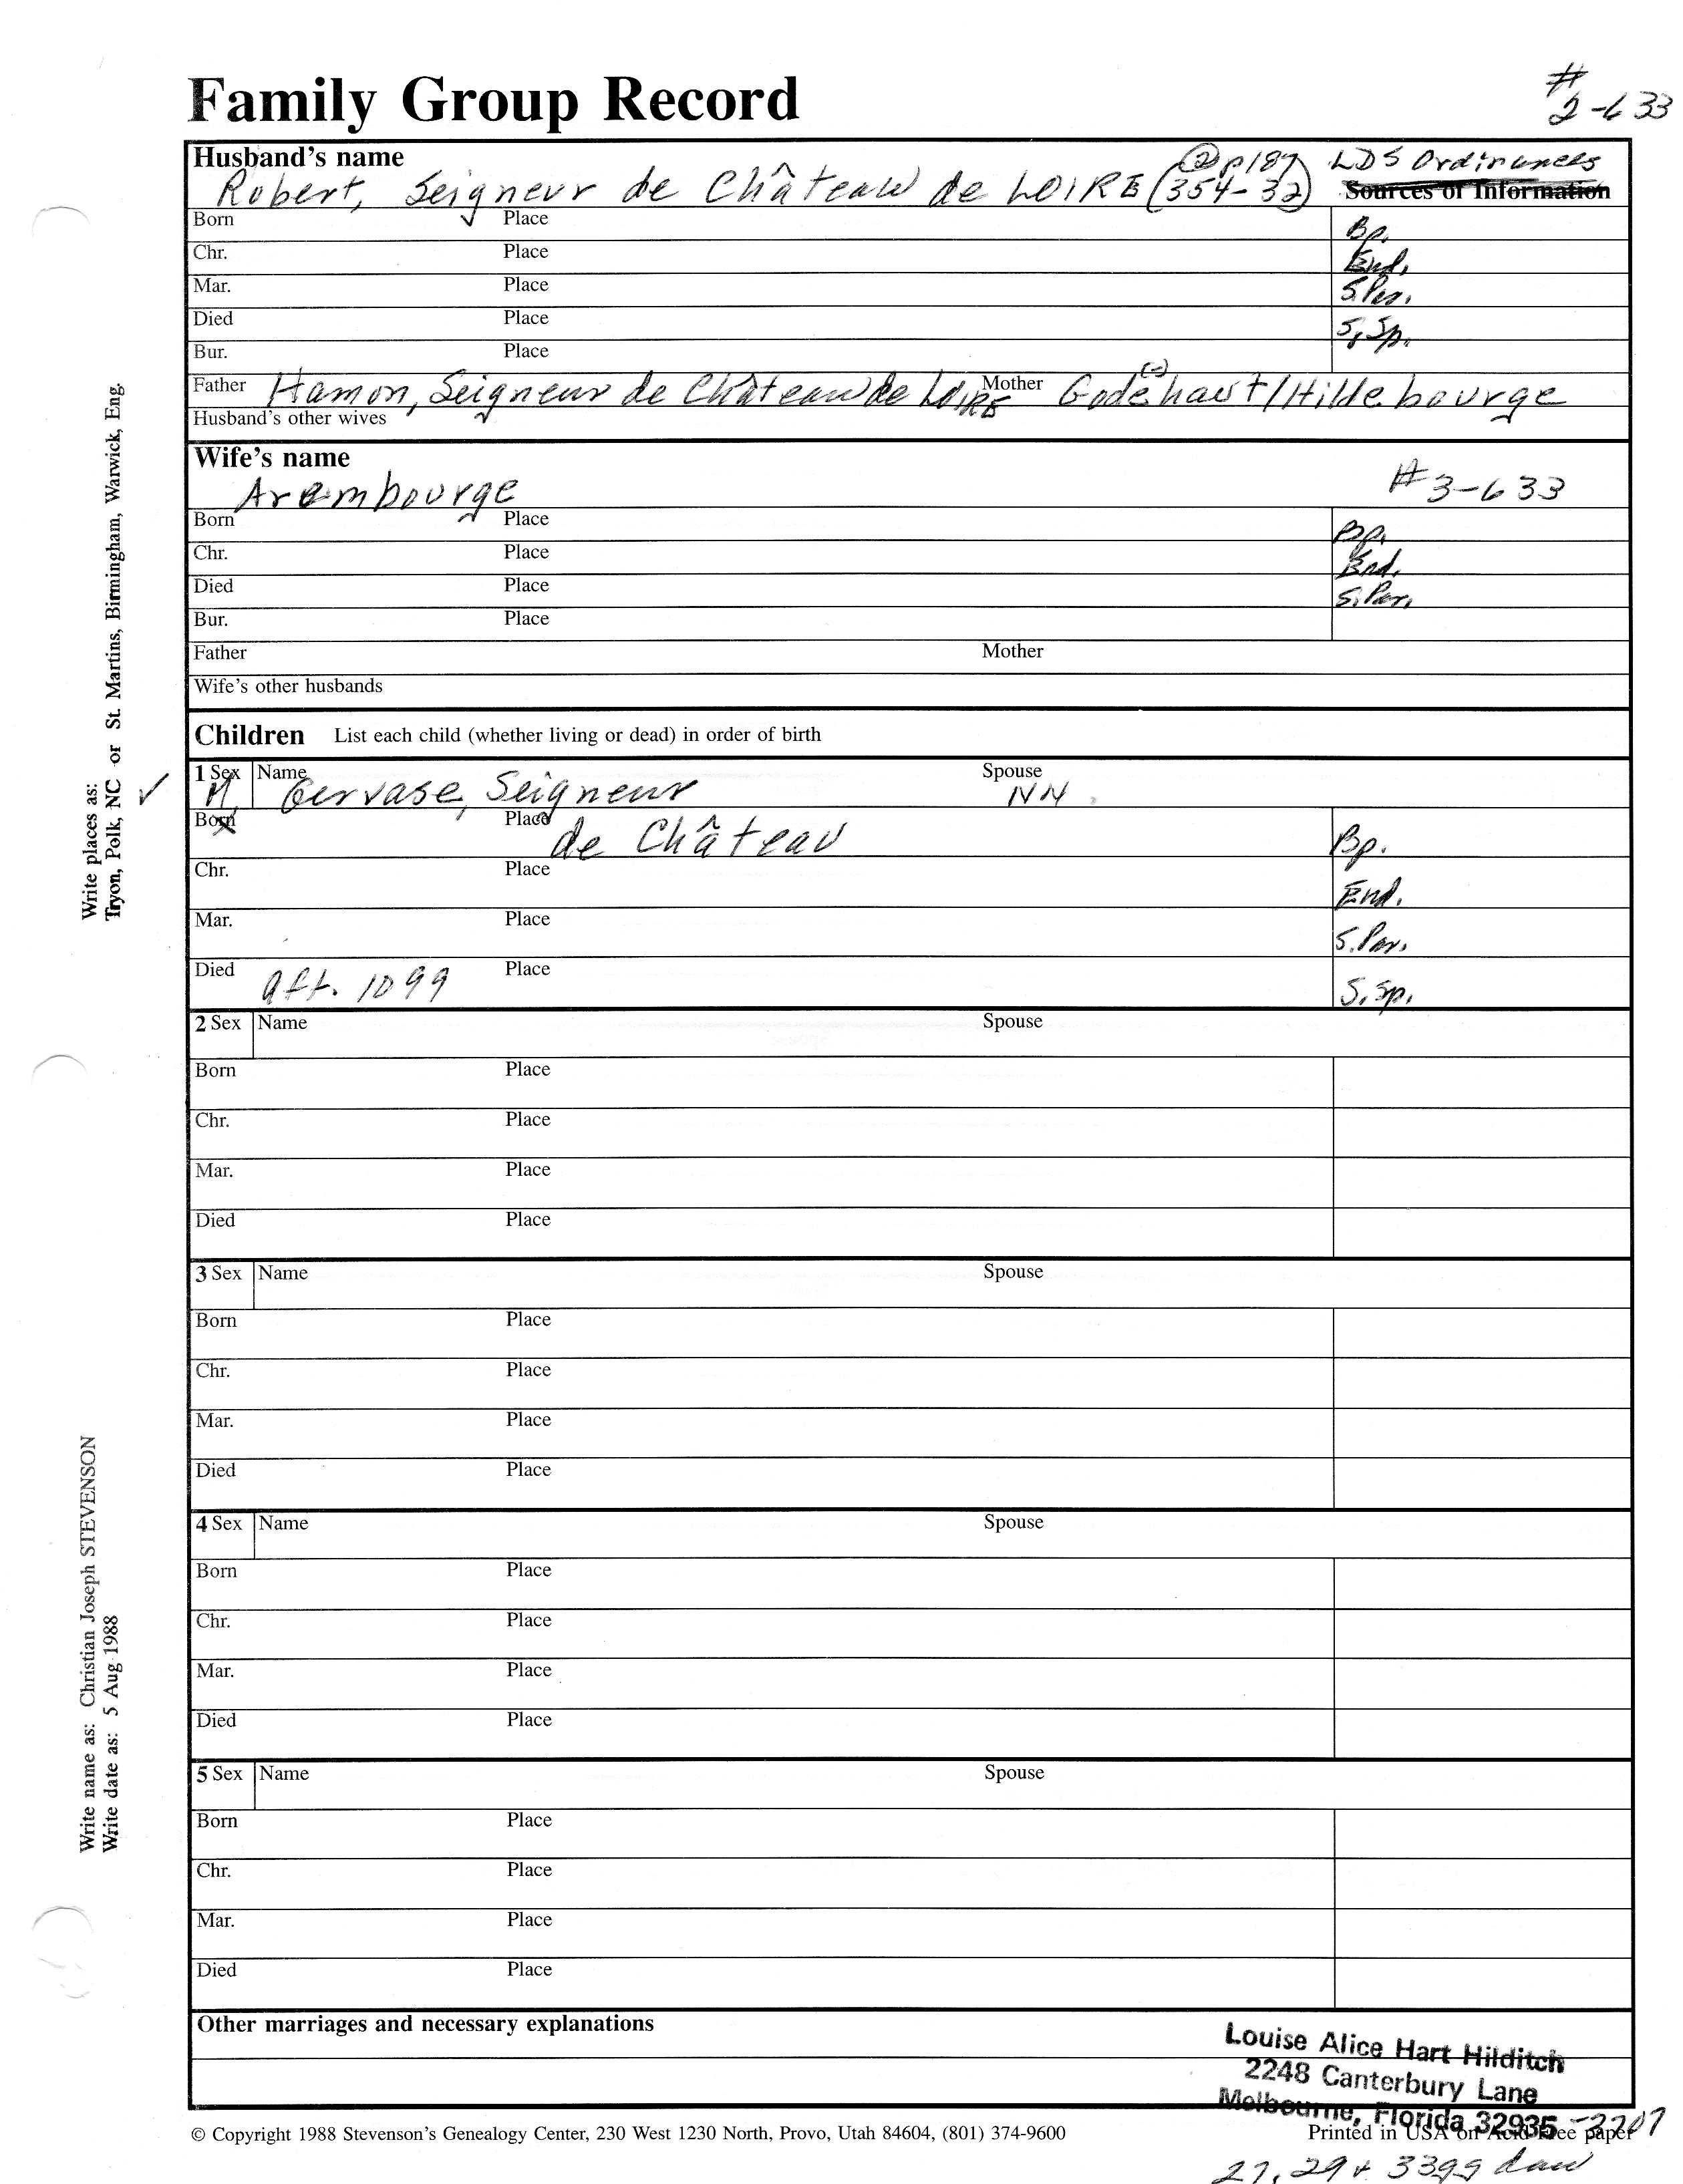 Family Group Record
# 2-633
Husband's name
Robert, Seigneur de Château de LOIRE (354-32)
② p187
LDS Ordinances
Sources of Information
Born Place
Bp.
Chr. Place
End.
Mar. Place
S. Par.
Died Place
S, Sp.
Bur. Place
Father Hamon, Seigneur de Château de LOIRE Mother Godehaut/Hildebourge
(-)
Husband's other wives
Wife's name
Arembourge
#3-633
Born Place
Bp.
Chr. Place
End.
Died Place
S. Par.
Bur. Place
Father Mother
Wife's other husbands
Children List each child (whether living or dead) in order of birth
1 Sex Name Spouse
M, Gervase, Seigneur NN
Born Place de Château Bp.
Chr. Place End.
Mar. Place S. Par.
Died aft. 1099 Place S, Sp.
2 Sex Name Spouse
Born Place
Chr. Place
Mar. Place
Died Place
3 Sex Name Spouse
Born Place
Chr. Place
Mar. Place
Died Place
4 Sex Name Spouse
Born Place
Chr. Place
Mar. Place
Died Place
5 Sex Name Spouse
Born Place
Chr. Place
Mar. Place
Died Place
Other marriages and necessary explanations
Louise Alice Hart Hilditch
2248 Canterbury Lane
Melbourne, Florida 32935 -3207
© Copyright 1988 Stevenson's Genealogy Center, 230 West 1230 North, Provo, Utah 84604, (801) 374-9600
Printed in USA on Acid Free paper
27, 29 + 33gg dau
Write places as:
Tryon, Polk, NC or St. Martins, Birmingham, Warwick, Eng.
Write name as: Christian Joseph STEVENSON
Write date as: 5 Aug 1988